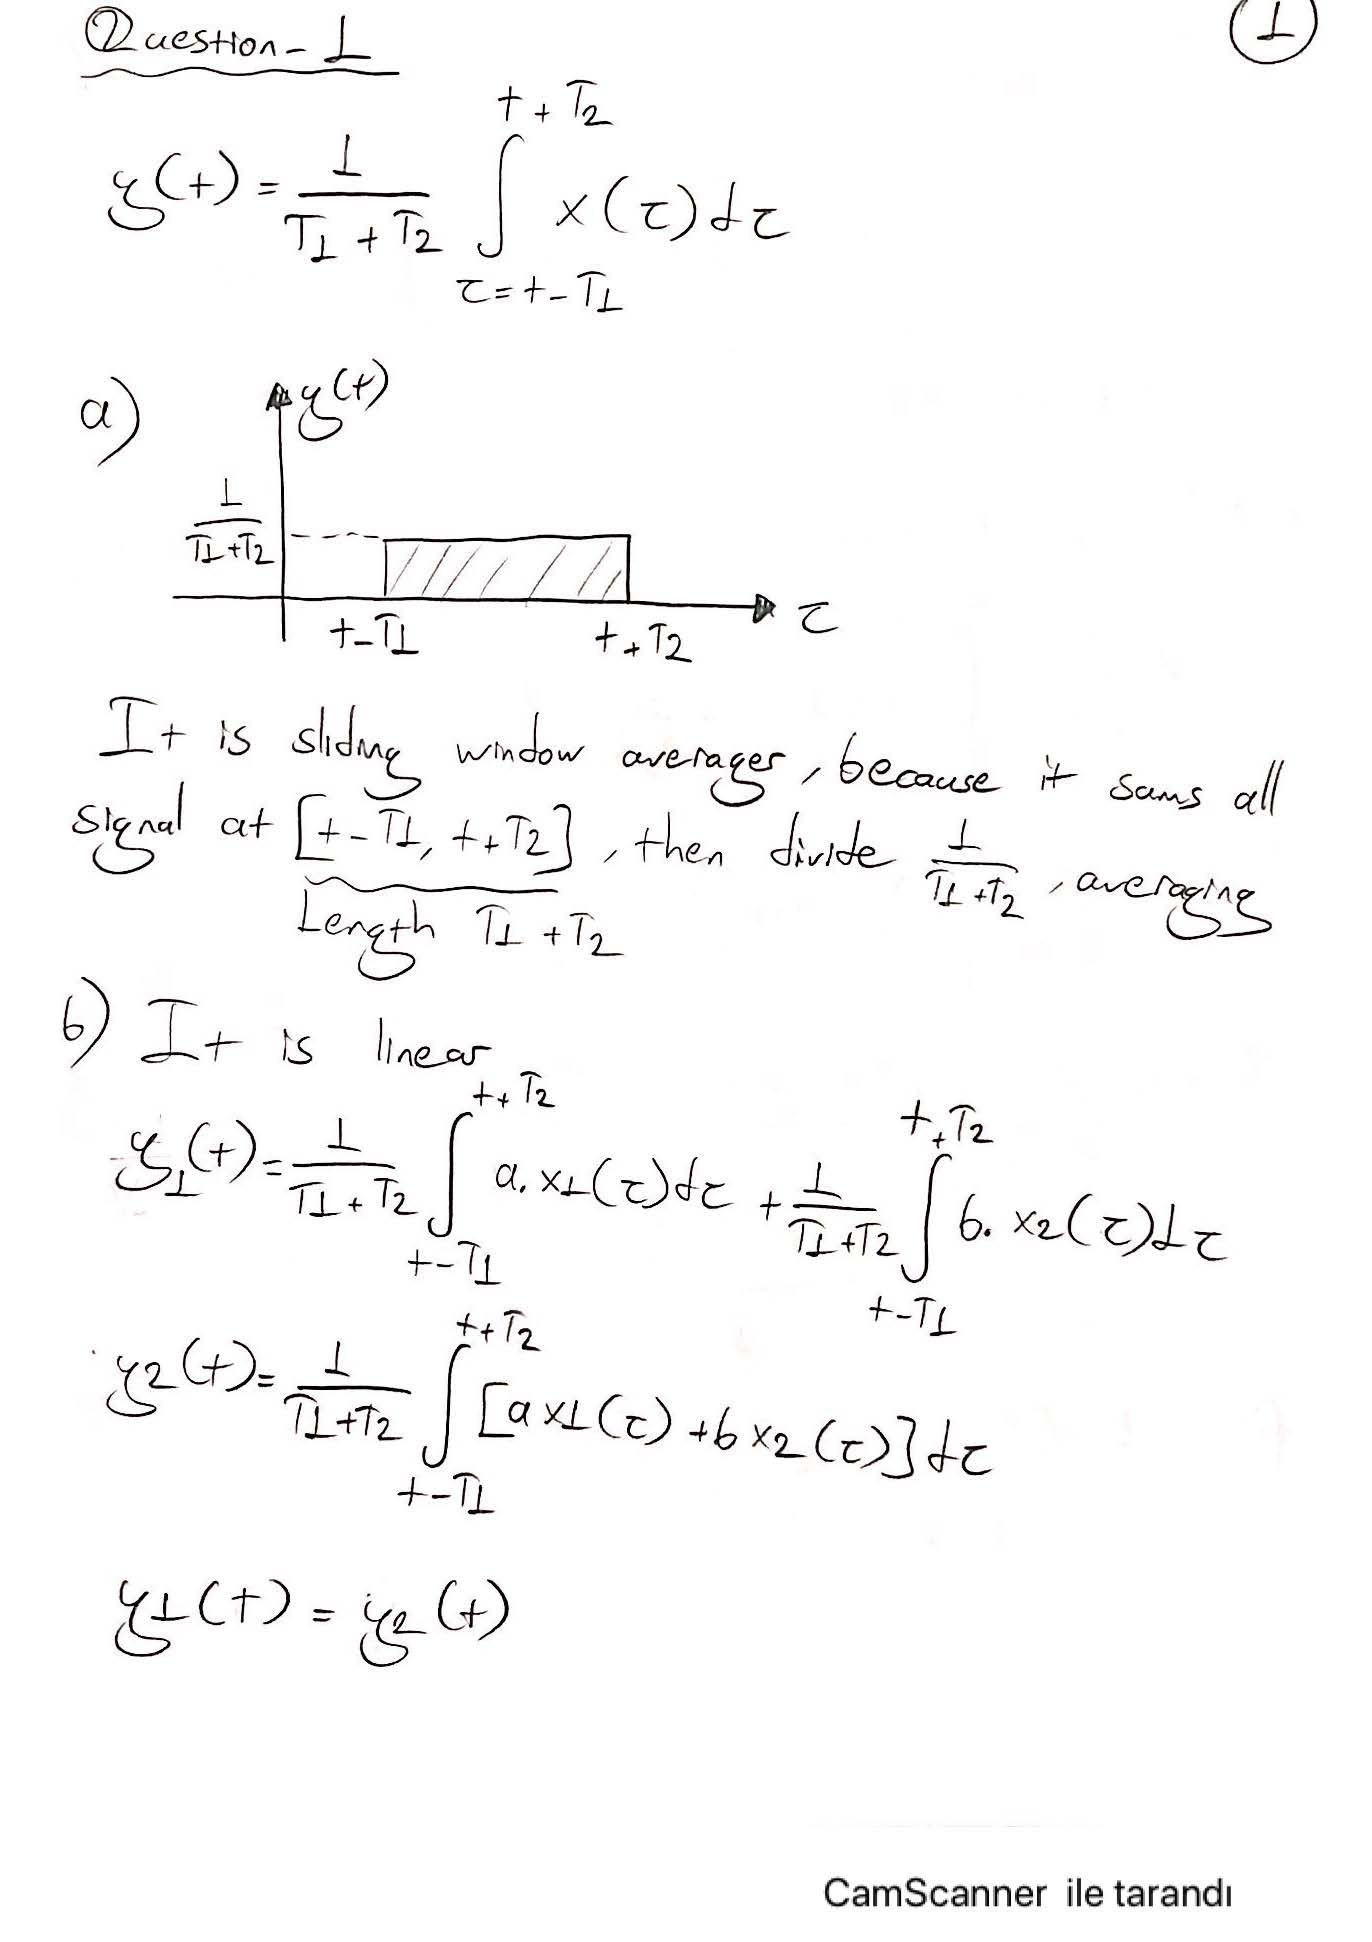 Question-1
1
y(t) = 1/(T1+T2) ∫_{τ=t-T1}^{t+T2} x(τ)dτ
a)
y(t)
1/(T1+T2)
t-T1 t+T2 τ
It is sliding window averager, because it sums all
signal at [t-T1, t+T2], then divide 1/(T1+T2), averaging
Length T1+T2
b) It is linear
y1(t) = 1/(T1+T2) ∫_{t-T1}^{t+T2} a.x1(τ)dτ + 1/(T1+T2) ∫_{t-T1}^{t+T2} b.x2(τ)dτ
y2(t) = 1/(T1+T2) ∫_{t-T1}^{t+T2} [ax1(τ)+bx2(τ)]dτ
y1(t) = y2(t)
CamScanner ile tarandı